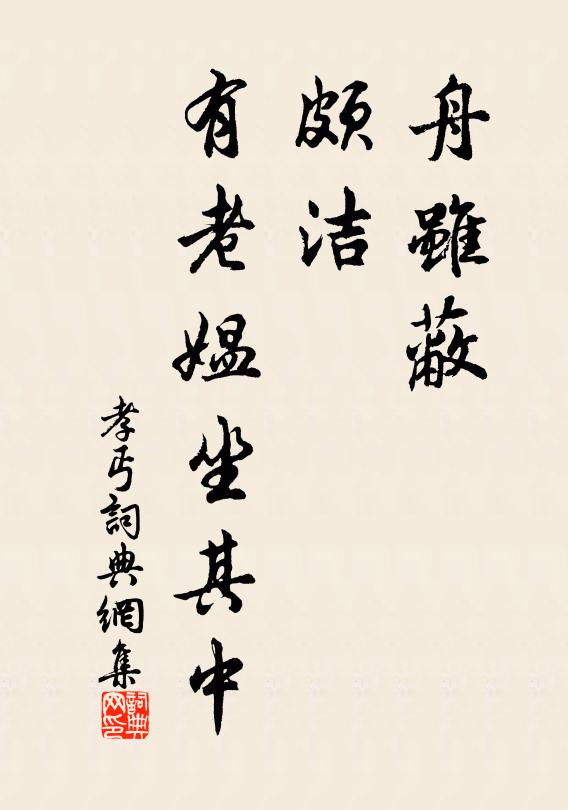 舟雖蔽
頗洁
有老媪坐其中
孝丐詞典網集
詞典
网印